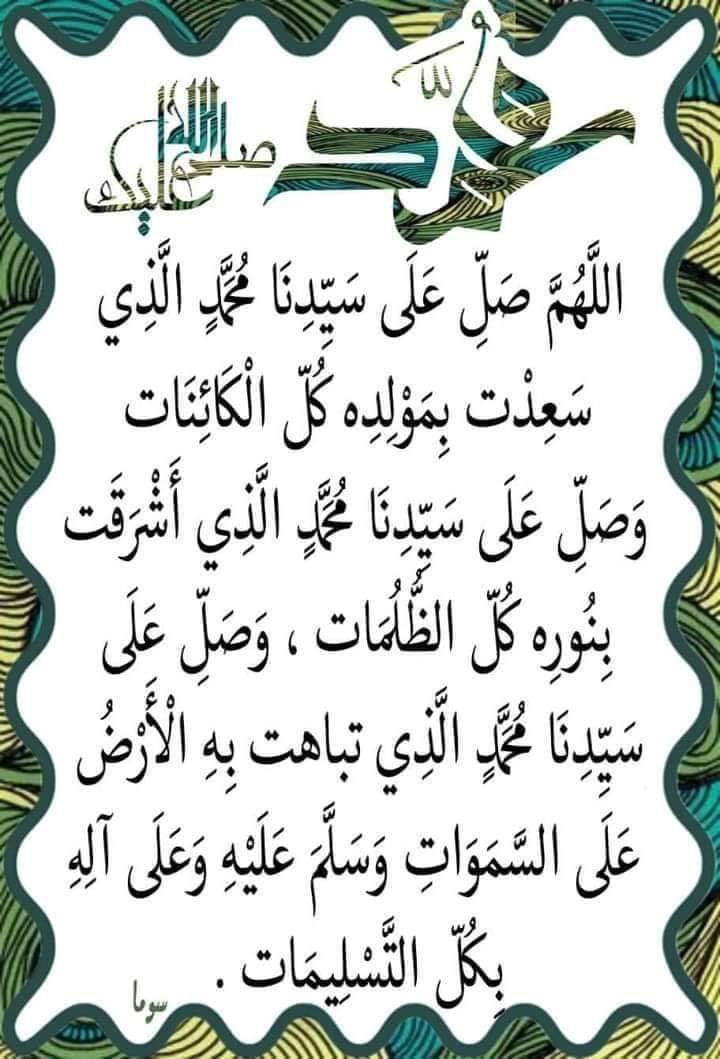 محمد ﷲ
صلى الله عليك
اللَّهُمَّ صَلِّ عَلَى سَيِّدِنَا مُحَمَّدٍ الَّذِي
سَعِدْت بِمَوْلِدِه كُلّ الْكَائِنَات
وَصَلِّ عَلَى سَيِّدِنَا مُحَمَّدٍ الَّذِي أَشْرَقَت
بِنُورِه كُلّ الظُّلُمَات ، وَصَلِّ عَلَى
سَيِّدِنَا مُحَمَّدٍ الَّذِي تباهت بِهِ الْأَرْضُ
عَلَى السَّمَوَاتِ وَسَلَّمَ عَلَيْهِ وَعَلَى آلِهِ
بِكُلّ التَّسْلِيمَات .
سوما